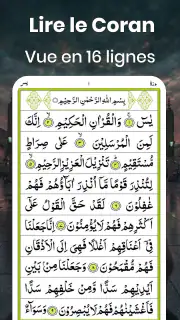 Lire le Coran
Vue en 16 lignes
بِسْمِ اللّٰهِ الرَّحْمٰنِ الرَّحِيْمِ
يٰسٓ وَالْقُرْاٰنِ الْحَكِيْمِ اِنَّكَ
لَمِنَ الْمُرْسَلِيْنَ عَلٰى صِرَاطٍ
مُّسْتَقِيْمٍ تَنْزِيْلَ الْعَزِيْزِ الرَّحِيْمِ
لِتُنْذِرَ قَوْمًا مَّآ اُنْذِرَ اٰبَآؤُهُمْ فَهُمْ
غٰفِلُوْنَ لَقَدْ حَقَّ الْقَوْلُ عَلٰٓى
اَكْثَرِهِمْ فَهُمْ لَا يُؤْمِنُوْنَ اِنَّا جَعَلْنَا
فِيْٓ اَعْنَاقِهِمْ اَغْلٰلًا فَهِيَ اِلَى الْاَذْقَانِ
فَهُمْ مُّقْمَحُوْنَ وَجَعَلْنَا مِنْۢ بَيْنِ
اَيْدِيْهِمْ سَدًّا وَّمِنْ خَلْفِهِمْ سَدًّا
فَاَغْشَيْنٰهُمْ فَهُمْ لَا يُبْصِرُوْنَ وَسَوَآءٌ